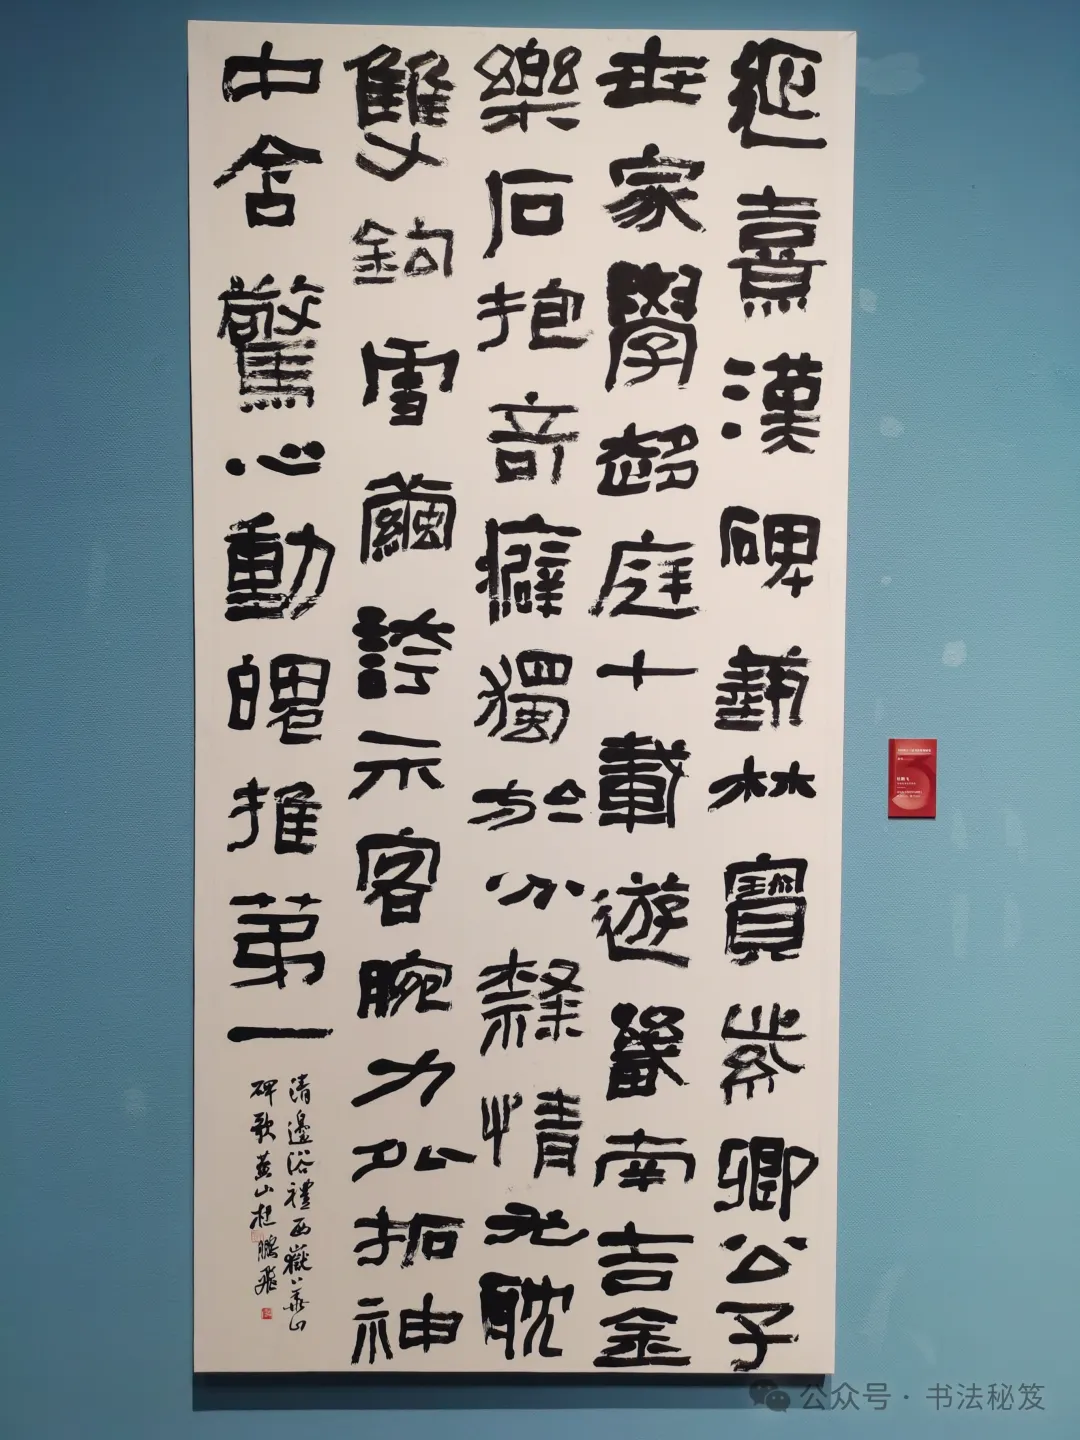 延熹漢碑藝林寶紫卿公子
世家學趨庭十載遊畿南吉金
樂石抱奇癖獨於分隸情尤耽
雙鉤雪繭誇示客腕力弘拓神
中含驚心動魄推第一
清邊浴禮西嶽華山
碑歌山杜鵬飛
公众号 · 书法秘笈